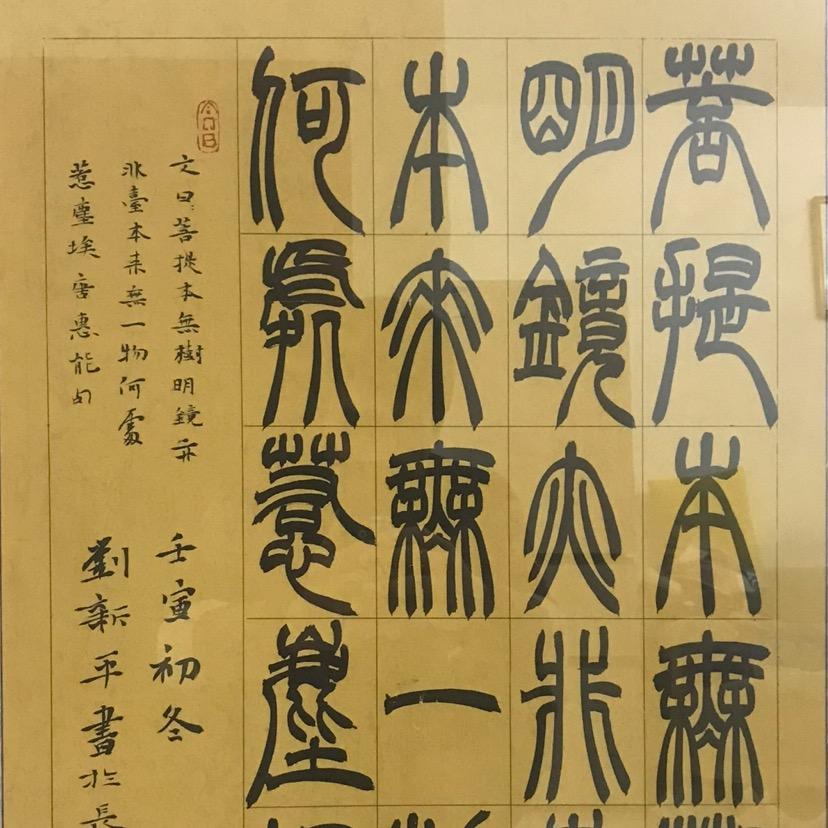 菩提本無
明鏡亦非
本來無一
何處惹塵
文曰菩提本無樹明鏡亦
非臺本来無一物何處
惹塵埃唐惠能句
壬寅初冬
劉新平書於長